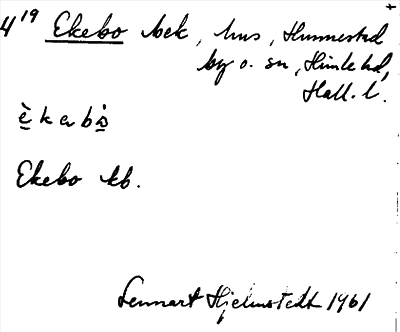 4¹⁹ Ekebo bek, hus, Hunnestad
by o. sn, Himle hd,
Hall. l.
èkabò
Ekebo kb.
Lennart Hjelmstedt 1961